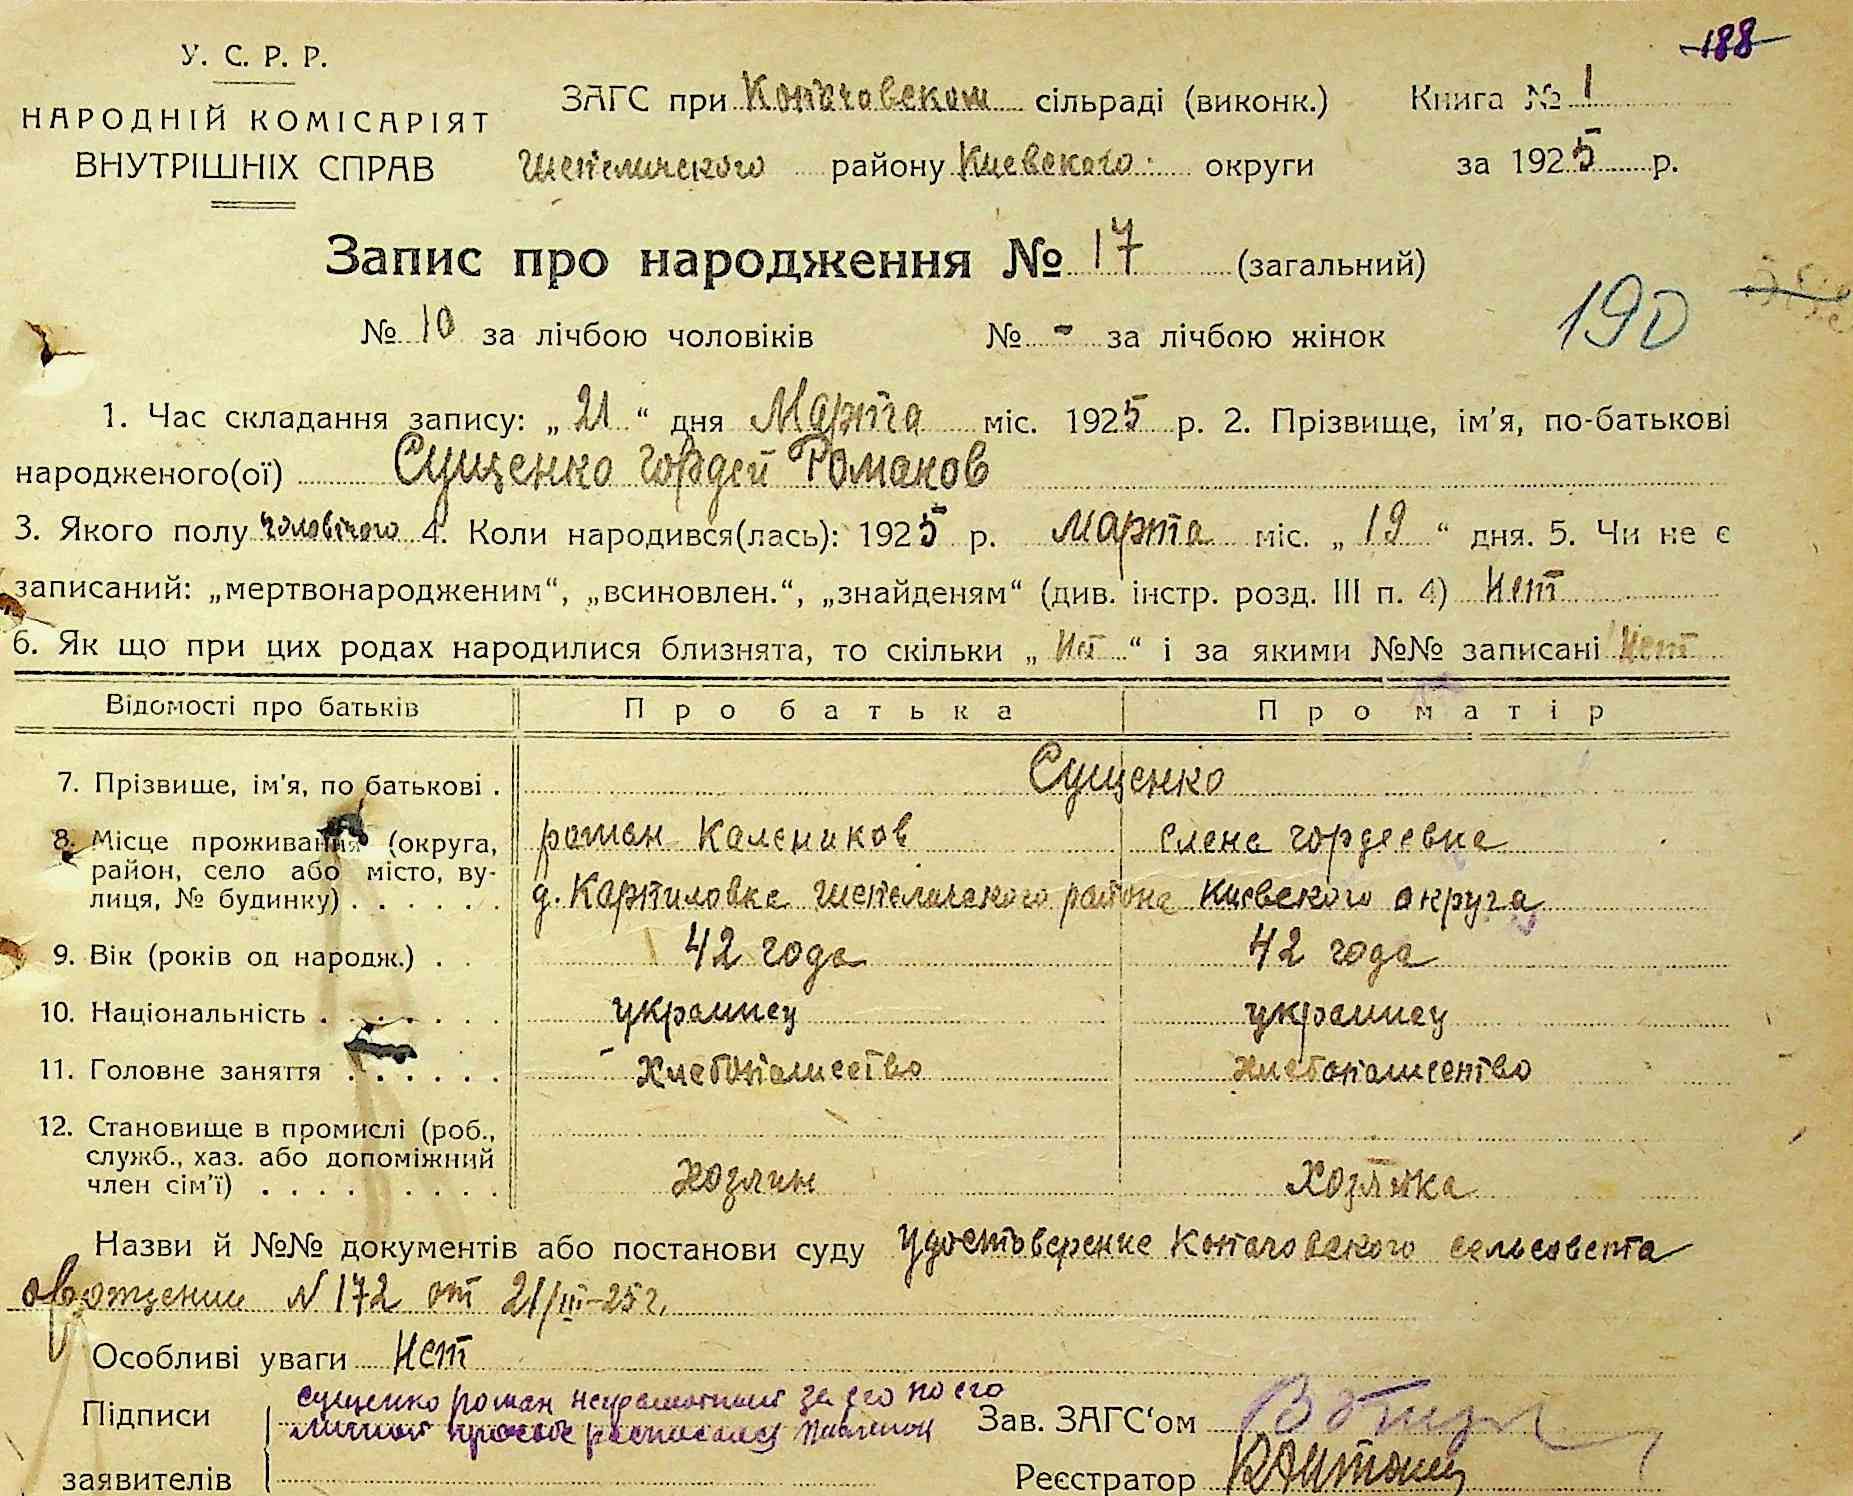 188
У. С. Р. Р.
НАРОДНІЙ КОМІСАРІЯТ
ВНУТРІШНІХ СПРАВ
ЗАГС при Копачовском сільраді (виконк.) Книга № 1
Шепеличского району Киевского округи за 1925 р.
Запис про народження № 17 (загальний)
№ 10 за лічбою чоловіків № - за лічбою жінок
190
1. Час складання запису: „ 21 “ дня Марта міс. 1925 р. 2. Прізвище, ім'я, по-батькові
народженого(ої) Сущенко Гордей Романов
3. Якого полу чоловічого 4. Коли народився(лась): 1925 р. Марта міс. „ 19 “ дня. 5. Чи не є
записаний: „мертвонародженим“, „всиновлен.“, „знайденям“ (див. інстр. розд. III п. 4) Нет
6. Як що при цих родах народилися близнята, то скільки „ Нет “ і за якими №№ записані Нет
Відомості про батьків Про батька Про матір
7. Прізвище, ім'я, по батькові . Сущенко
8. Місце проживання (округа, роман Калеников Елена Гордеевна
район, село або місто, ву-
лиця, № будинку) . . . . . . д. Карпиловка Шепеличского района Киевского округа
9. Вік (років од народж.) . . 42 года 42 года
10. Національність . . . . . . . украинец украинец
11. Головне заняття . . . . . . Хлебопашество Хлебопашество
12. Становище в промислі (роб.,
служб., хаз. або допоміжний
член сім'ї) . . . . . . . . . Хозяин Хозяйка
Назви й №№ документів або постанови суду Удостоверение Копачовского сельсовета
о рождении N 172 от 21/III-25 г.
Особливі уваги Нет
Підписи
заявителів
сущенко роман неграмотний за его по его
личной просьбе расписался
Зав. ЗАГС'ом
Реєстратор